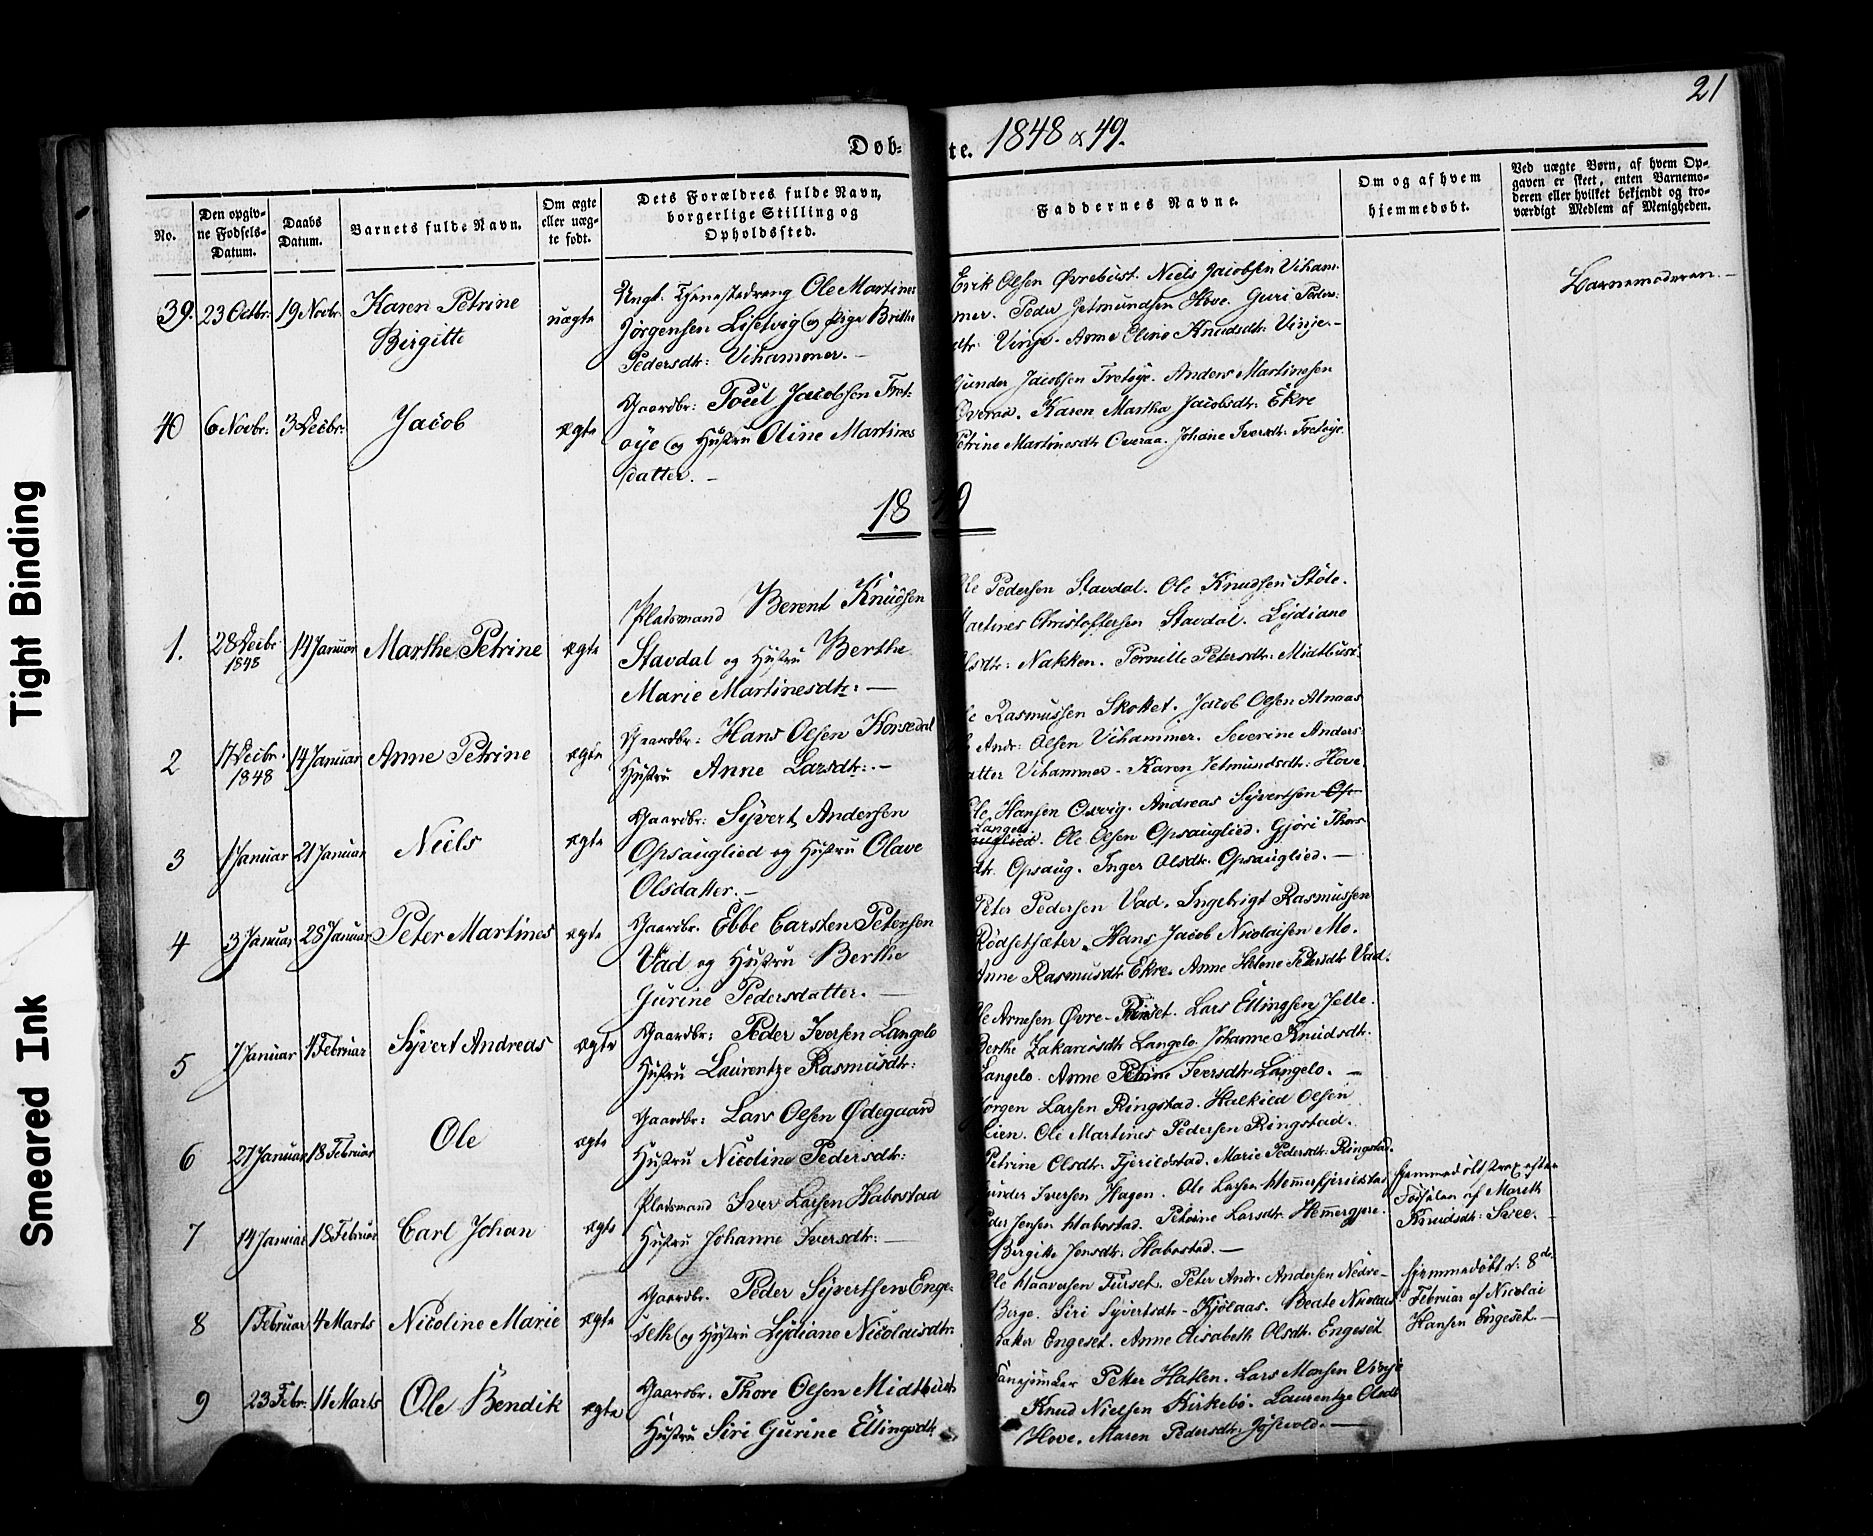 21
Døb- te. 1848 & 49.
No.
Den opgiv-
ne Fødsels-
Datum.
Daabs
Datum.
Barnets fulde Navn.
Om ægte
eller uæg-
te født.
Dets Forældres fulde Navn,
borgerlige Stilling og
Opholdssted.
Faddernes Navne.
Om og af hvem
hjemmedøbt.
Ved uægte Børn, af hvem Op-
gaven er skeet, enten Barnemo-
deren eller hvilket bekjendt og tro-
værdigt Medlem af Menigheden.
39. 23 Octbr: 19 Novbr: Karen Petrine
Birgitte
uægte
Ungk. Tjenestedreng Ole Martines
Jørgensen og Pige Brithe
Pedersdtr: Vihammer. —
Erik Olsen Øvrebust. Niels Jacobsen Viham-
mer. Peder Jetmundsen Hove. Guri Peders-
dtr: Vinje. Anne Oline Knudsdtr: Vinje. —
Barnemoderen. —
40 6 Novbr: 3 Decbr: Jacob ægte
Gaardbr: Poul Jacobsen Fret-
øye og Hustru Oline Martines
datter. —
Gunder Jacobsen Fretøye. Anders Martinesen
Overaa. Karen Martha Jacobsdtr: Ekre
Petrine Martinesdtr Overaa. Johane Iversdtr: Fretøye.
18 49
1. 28 Decbr
1848
14 Januar Marthe Petrine ægte
Pladsmand Berent Knudsen
Stavdal og Hustru Berthe
Marie Martinesdtr: —
Ole Pedersen Stavdal. Ole Knudsen Støle.
Martines Christoffersen Stavdal. Lydiane
Olsdtr: Nakken. Pernille Petersdtr: Midtbust.
2 17 Decbr.
1848
14 Januar Anne Petrine ægte
Gaardbr: Hans Olsen Korsedal
Hustru Anne Larsdtr: —
Ole Rasmussen Skottet. Jacob Olsen Alnaas
Andr: Olsen Vihammer. Severine Anders-
datter Vihammer. Karen Jetmundsdtr: Hove
3 1 Januar 21 Januar Niels ægte
Gaardbr: Syvert Andersen
Opsauglied og Hustru Olave
Olsdatter. —
Ole Hansen Osvig. Andreas Syvertsen Op-
Langelo
sauglied. Ole Olsen Opsauglied. Gjøri Thors-
dtr. Opsaug. Inger Olsdtr. Opsauglied. —
4 3 Januar 28 Januar Peter Martines ægte
Gaardbr. Ebbe Carsten Petersen
Vad og Hustru Berthe
Gurine Pedersdatter. —
Peter Pedersen Vad. Ingebrigt Rasmussen
Rødsetsæter. Hans Jacob Nicolaisen Mo.
Anne Rasmusdtr Ekre. Anne Helene Pedersdtr Vad.
5 7 Januar 4 Februar Syvert Andreas ægte
Gaardbr: Peder Iversen Langelo
Hustru Laurentze Rasmusdtr:
Ole Arnesen Øvre- Lars Ellingsen Jelle.
Berthe Zakariasdtr Langelo. Johanne Knudsdtr.
Langelo. Anne Petrine Iversdtr Langelo. —
6 27 Januar 18 Februar Ole ægte
Gaardbr: Lars Olsen Ødegaard
Hustru Nicoline Pedersdtr:
Jørgen Larsen Ringstad. Halkild Olsen
Lien. Ole Martines Pedersen Ringstad.
Petrine Olsdtr. Fjerildstad. Marie Pedersdtr: Ringstad.
7 14 Januar 18 Februar Carl Johan ægte
Pladsmand Iver Larsen Habostad
Hustru Johanne Iversdtr: —
Gunder Iversen Hagen. Ole Larsen
Peder Jensen Habostad. Petrine Larsdtr. Hemmergjere.
Birgitte Jensdtr: Habostad. —
Hjemmedøbt strax efter
Fødselen af Mareth
Knudsdtr: Svee. —
8 1 Februar 4 Marts Nicoline Marie ægte
Gaardbr. Peder Syvertsen Enge-
seth og Hustru Lydiane Nicolaisdtr.
Ole Haaversen Furset. Peter Andr. Andersen Nedre-
Berge. Siri Syvertsdtr. Kjølaas. Beate Nicolais-
datter Engeset. Anne Elisabeth Olsdtr. Engeset
Hjemmedøbt d. 8de
Februar af Nicolai
Hansen Engeset. —
9 23 Febr. 11 Marts Ole Bendik ægte
Gaardbr. Thore Olsen Midtbust
Hustru Siri Gurine Ellingsdtr
Peter Hatlen. Lars Monsen Vinje
Knud Nielsen Kirkebø. Laurentze Olsdtr
Hove. Maren Pedersdtr. —
Tight Binding
Smeared Ink